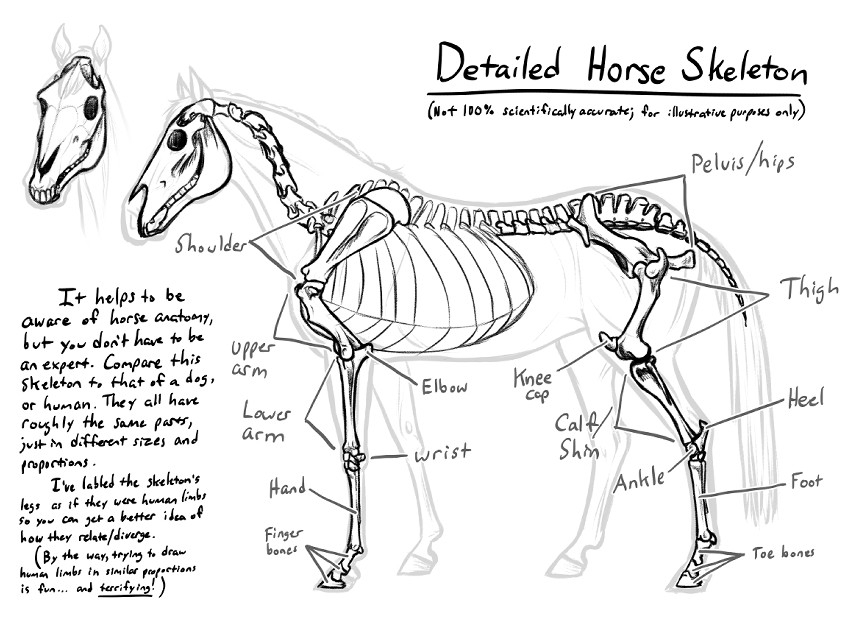 Detailed Horse Skeleton
(Not 100% scientifically accurate; for illustrative purposes only)
Pelvis/hips
Shoulder
Thigh
It helps to be
aware of horse anatomy,
but you don't have to be
an expert. Compare this
skeleton to that of a dog,
or human. They all have
roughly the same parts,
just in different sizes and
proportions.
I've labled the skeleton's
legs as if they were human limbs
so you can get a better idea of
how they relate/diverge.
(By the way, trying to draw
human limbs in similar proportions
is fun... and terrifying!)
Upper
arm
Elbow
Knee
cap
Heel
Lower
arm
Calf/
Shin
wrist
Ankle
Foot
Hand
Finger
bones
Toe bones